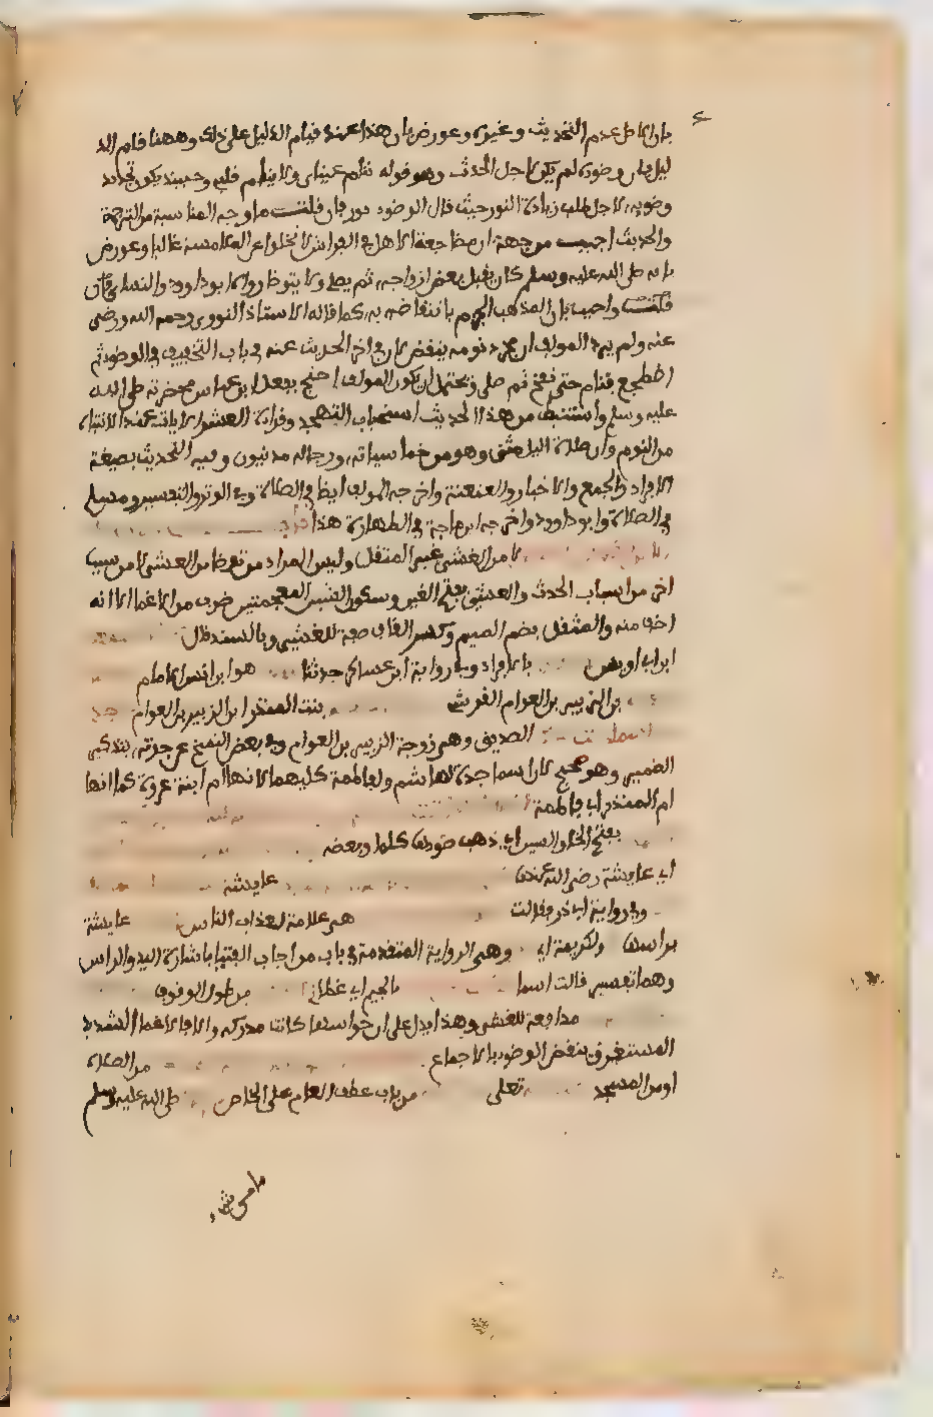 بان الاصل عدم التحديث وغيره وعورض بان هذا عند قيام الدليل على ذلك وههنا قام الد
ليل بان وضوءه لم يكن لاجل الحدث وهو قوله تنام عيناى ولا ينام قلبي وحينيذ يكون تجديد
وضويه لاجل طلب زيادة النور حيث قال الوضوء نور فان قلت ما وجه المناسبة من الترجمة
والحديث اجيب من جهة ان مضاجعة الاهل في الفراش لا تخلوا عن الملامسة غالبا وعورض
بانه صلى الله عليه وسلم كان يقبل بعض ازواجه ثم يصلي ولا يتوضا رواه ابو داوود والنساي فان
قلت واجيب بان المذهب الجزم بانتقاضه به كما قاله الاستاذ النووي رحمه الله ورضي
عنه ولم يرد المولف ان مجرد نومه ينقض لان في اخر الحديث عنه في باب التخفيف في الوضوء ثم
اضطجع فنام حتى نفخ ثم صلى ويحتمل ان يكون المولف احتج بفعل ابن عباس بحضرته صلى الله
عليه وسلم واستنبط من هذا الحديث استحباب التهجد وقراءة العشر الايات عند الانتباه
من النوم وان صلاة الليل مثنى وهو من خماسياته ورجاله مدنيون وفيه التحديث بصيغة
الافراد والجمع والاخبار والعنعنة واخرجه المولف ايضا في الصلاة وفي الوتر والتفسير ومسلم
في الصلاة وابو داوود واخرجه ابن ماجة في الطهارة هذا
الا من الغشي غير المثقل وليس المراد من توضا من الغشي لا من سبب
اخر من اسباب الحدث والغشي بفتح الغين وسكون الشين المعجمتين ضرب من الاغما الا انه
اخف منه والمثقل بضم الميم وكسر القاف صفة للغشي وبالسند قال
اي ابن ابي اويس بالافراد وفي رواية ابن عساكر حدثنا هو ابن انس الامام
بن الزبير بن العوام القرشي بنت المنذر ابن الزبير بن العوام
اسما بنت الصديق وهي زوجة الزبير بن العوام وفي بعض النسخ عن جدته بتذكير
الضمير وهو صحيح لان اسما جدة لهاشم ولفاطمة كليهما لانها ام ابيه عروة كما انها
ام المنذر اب فاطمة
بفتح الخا والسين اي ذهب ضوءها كلها او بعضه
اي عايشة رضي الله عنها عايشة
وفي رواية ابي ذر فقالت هي علامة لعذاب الناس عايشة
براسها ولكريمة اي وهي الرواية المتقدمة في باب من اجاب الفتيا باشارة اليد والراس
وهما تفسير قالت اسما بالجيم اي غطاني من طول الوقوف
مدافعة للغشي وهذا يدل على ان حواسها كانت مدركة والا فالاغما الشديد
المستغرق ينقض الوضوء بالاجماع من الصلاة
او من المسجد تعلى من باب عطف العام على الخاص صلى الله عليه وسلم